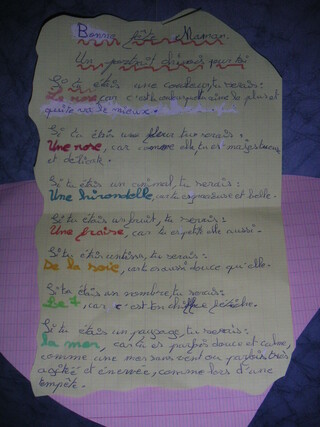 Bonne fête Maman.
Un portrait chinois pour toi
Si tu étais une couleur, tu serais:
Le rose, car c'est celui que tu aimes le plus et
qui te va le mieux.
Si tu étais une fleur tu serais:
Une rose, car comme elle, tu es majestueuse
et délicate.
Si tu étais un animal, tu serais:
Une hirondelle, car tu es gracieuse et belle.
Si tu étais un fruit, tu serais:
Une fraise, car tu es petite elle aussi.
Si tu étais un tissu, tu serais:
De la soie, car tu es aussi douce qu'elle.
Si tu étais un nombre, tu serais:
Le 7, car c'est ton chiffre fétiche.
Si tu étais un paysage, tu serais:
La mer, car tu es parfois douce et calme,
comme une mer sans vent ou parfois très
agitée et énervée, comme lors d'une
tempête.